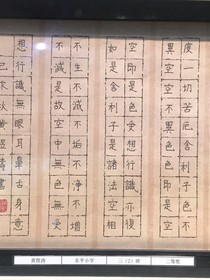 度一切苦厄舍利子色不
異空空不異色色即是空
空即是色受想行識亦復
如是舍利子是諸法空相
不生不滅不垢不淨不增
不減是故空中無色無受
想行識無眼耳鼻舌身意
秋黃書
东平小学 三（2）班 二等奖